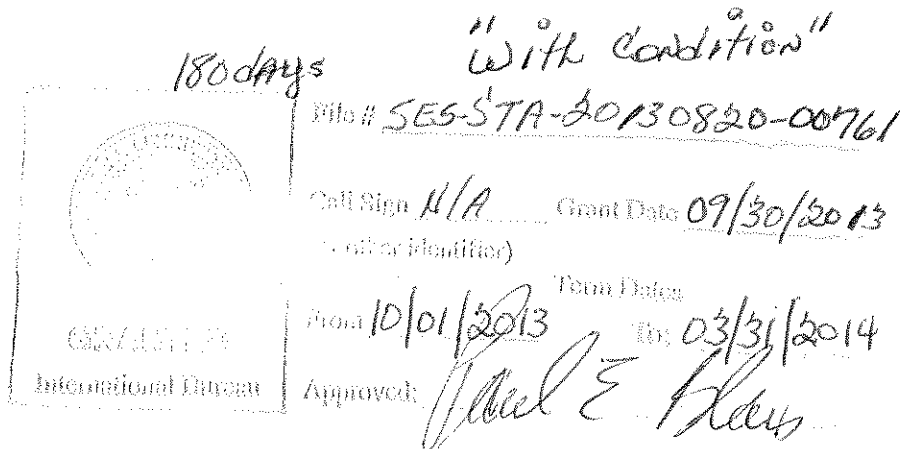 "With Condition"
180 days
File # SES-STA-20130820-00761
Call Sign N/A Grant Date 09/30/2013
(or other identifier)
Term Dates
From 10/01/2013 To: 03/31/2014
GRANTED
International Bureau
Approved: